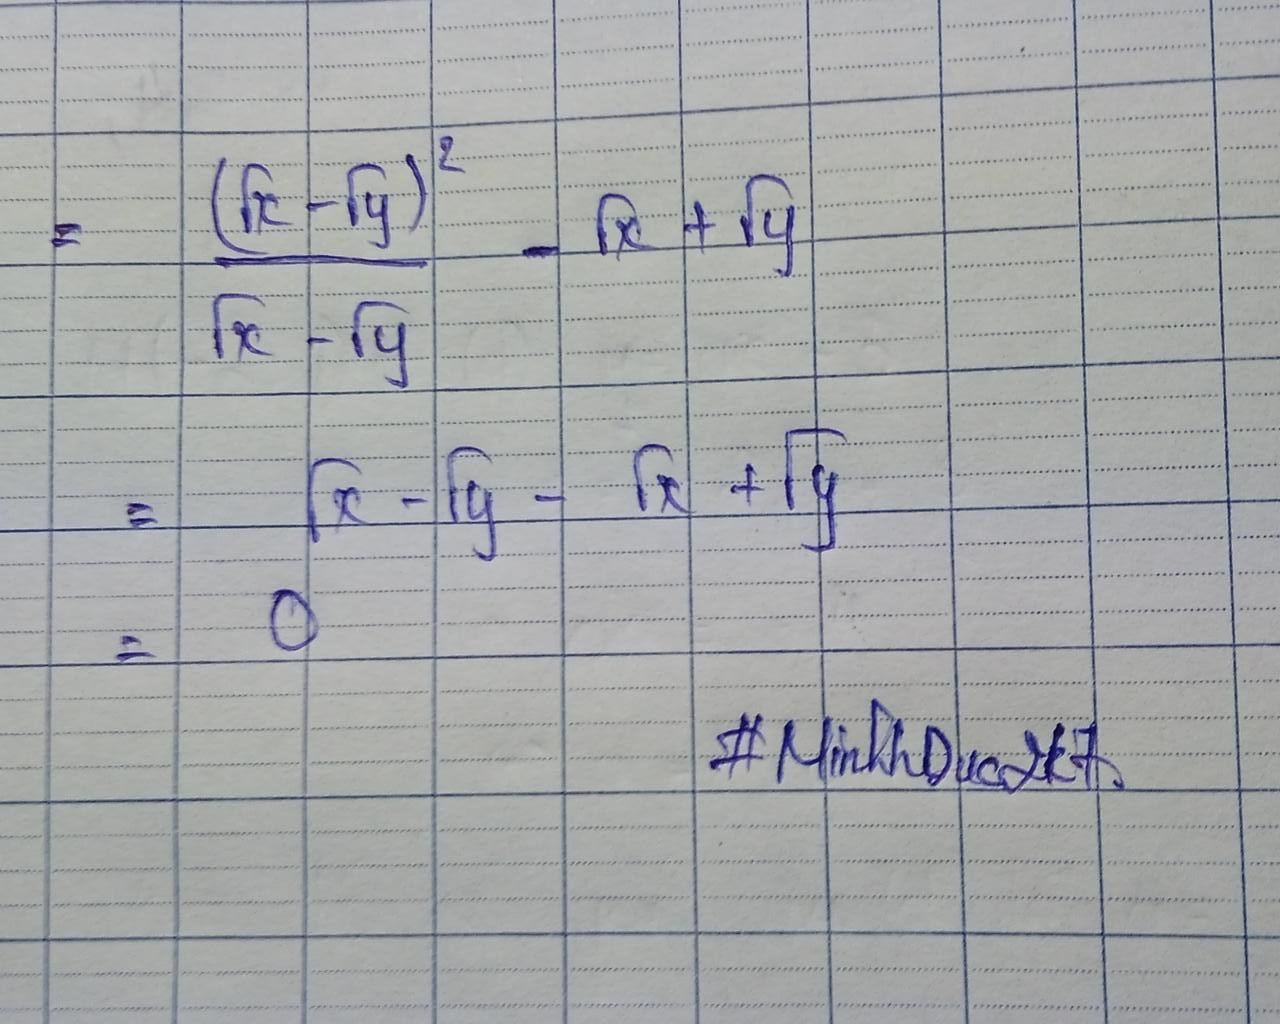 = (√x - √y)² / (√x - √y) - √x + √y
= √x - √y - √x + √y
= 0
#MinhDuc2k7